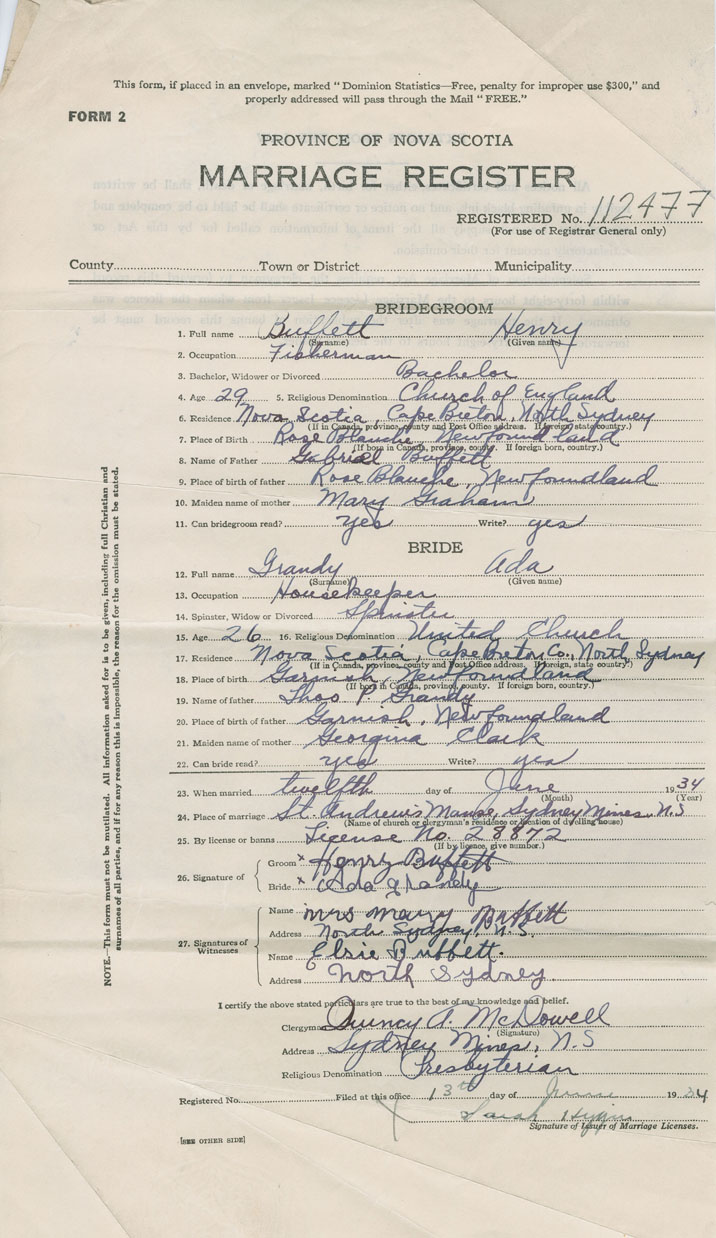 This form, if placed in an envelope, marked "Dominion Statistics—Free, penalty for improper use $300," and
properly addressed will pass through the Mail "FREE."
FORM 2
PROVINCE OF NOVA SCOTIA
MARRIAGE REGISTER
REGISTERED No. 112477
(For use of Registrar General only)
County Town or District Municipality
BRIDEGROOM
1. Full name Buffett Henry
(Surname) (Given name)
2. Occupation Fisherman
3. Bachelor, Widower or Divorced Bachelor
4. Age 29 5. Religious Denomination Church of England
6. Residence Nova Scotia, Cape Breton, North Sydney
(If in Canada, province, county and Post Office address. If foreign, state country.)
7. Place of Birth Rose Blanche, Newfoundland
(If born in Canada, province, county. If foreign born, country.)
8. Name of Father Gabriel Buffett
9. Place of birth of father Rose Blanche, Newfoundland
10. Maiden name of mother Mary Graham
11. Can bridegroom read? yes Write? yes
BRIDE
12. Full name Grandy Ada
(Surname) (Given name)
13. Occupation Housekeeper
14. Spinster, Widow or Divorced Spinster
15. Age 26 16. Religious Denomination United Church
17. Residence Nova Scotia, Cape Breton Co., North Sydney
(If in Canada, province, county and Post Office address. If foreign, state country.)
18. Place of birth Garnish, Newfoundland
(If born in Canada, province, county. If foreign born, country.)
19. Name of father Thos P. Grandy
20. Place of birth of father Garnish, Newfoundland
21. Maiden name of mother Georgina Clark
22. Can bride read? yes Write? yes
23. When married twelfth day of June 1934
(Month) (Year)
24. Place of marriage St. Andrew's Manse, Sydney Mines, N.S
(Name of church or clergyman's residence or location of dwelling house)
25. By license or banns License No. 28872
(If by licence, give number.)
26. Signature of Groom x Henry Buffett
Bride x Ada grandy
27. Signatures of Witnesses
Name Mrs Mary Buffett
Address North Sydney, N.S.
Name Elsie Buffett.
Address North Sydney
I certify the above stated particulars are true to the best of my knowledge and belief.
Clergyman Quincy A. McDowell
(Signature)
Address Sydney Mines, N.S
Religious Denomination Presbyterian
Registered No. Filed at this office 13th day of June 1934
Sarah
Signature of Issuer of Marriage Licenses.
[SEE OTHER SIDE]
NOTE.—This form must not be mutilated. All information asked for is to be given, including full Christian and
surnames of all parties, and if for any reason this is impossible, the reason for the omission must be stated.